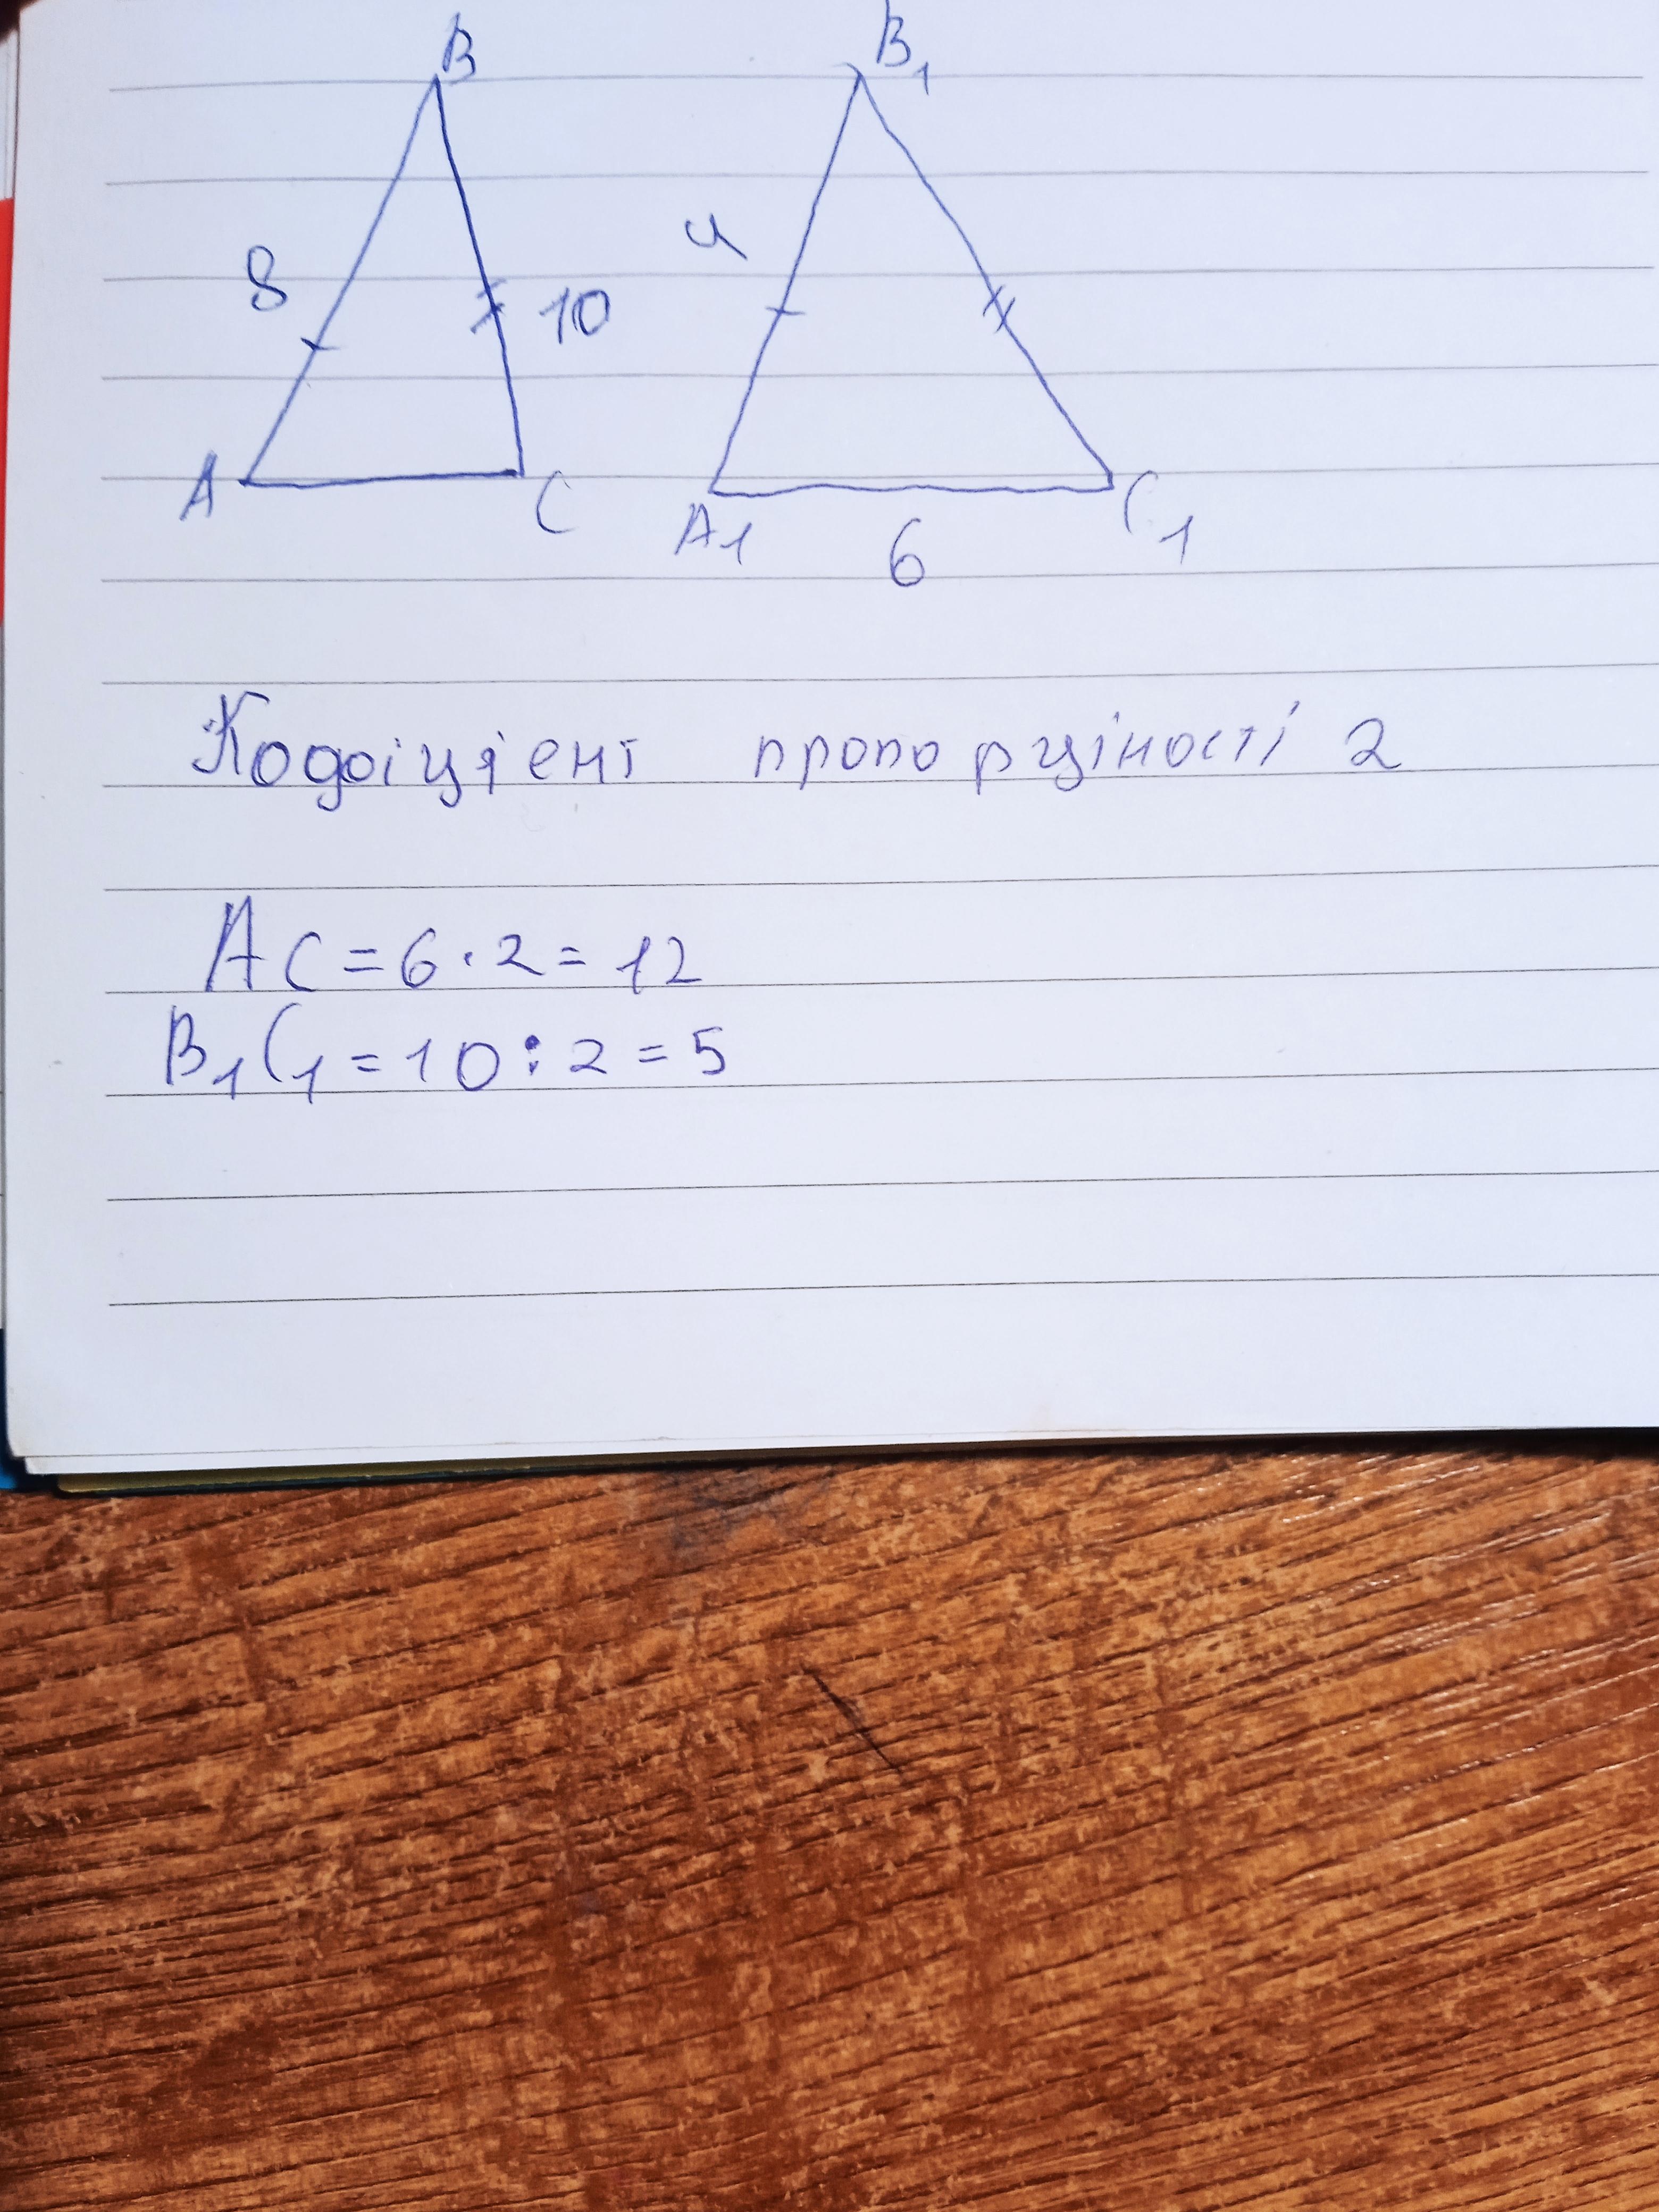 B B1
8 10 4
A C A1 6 C1
Кофоіцієнт пропорціності 2
AC = 6 · 2 = 12
B1C1 = 10 : 2 = 5